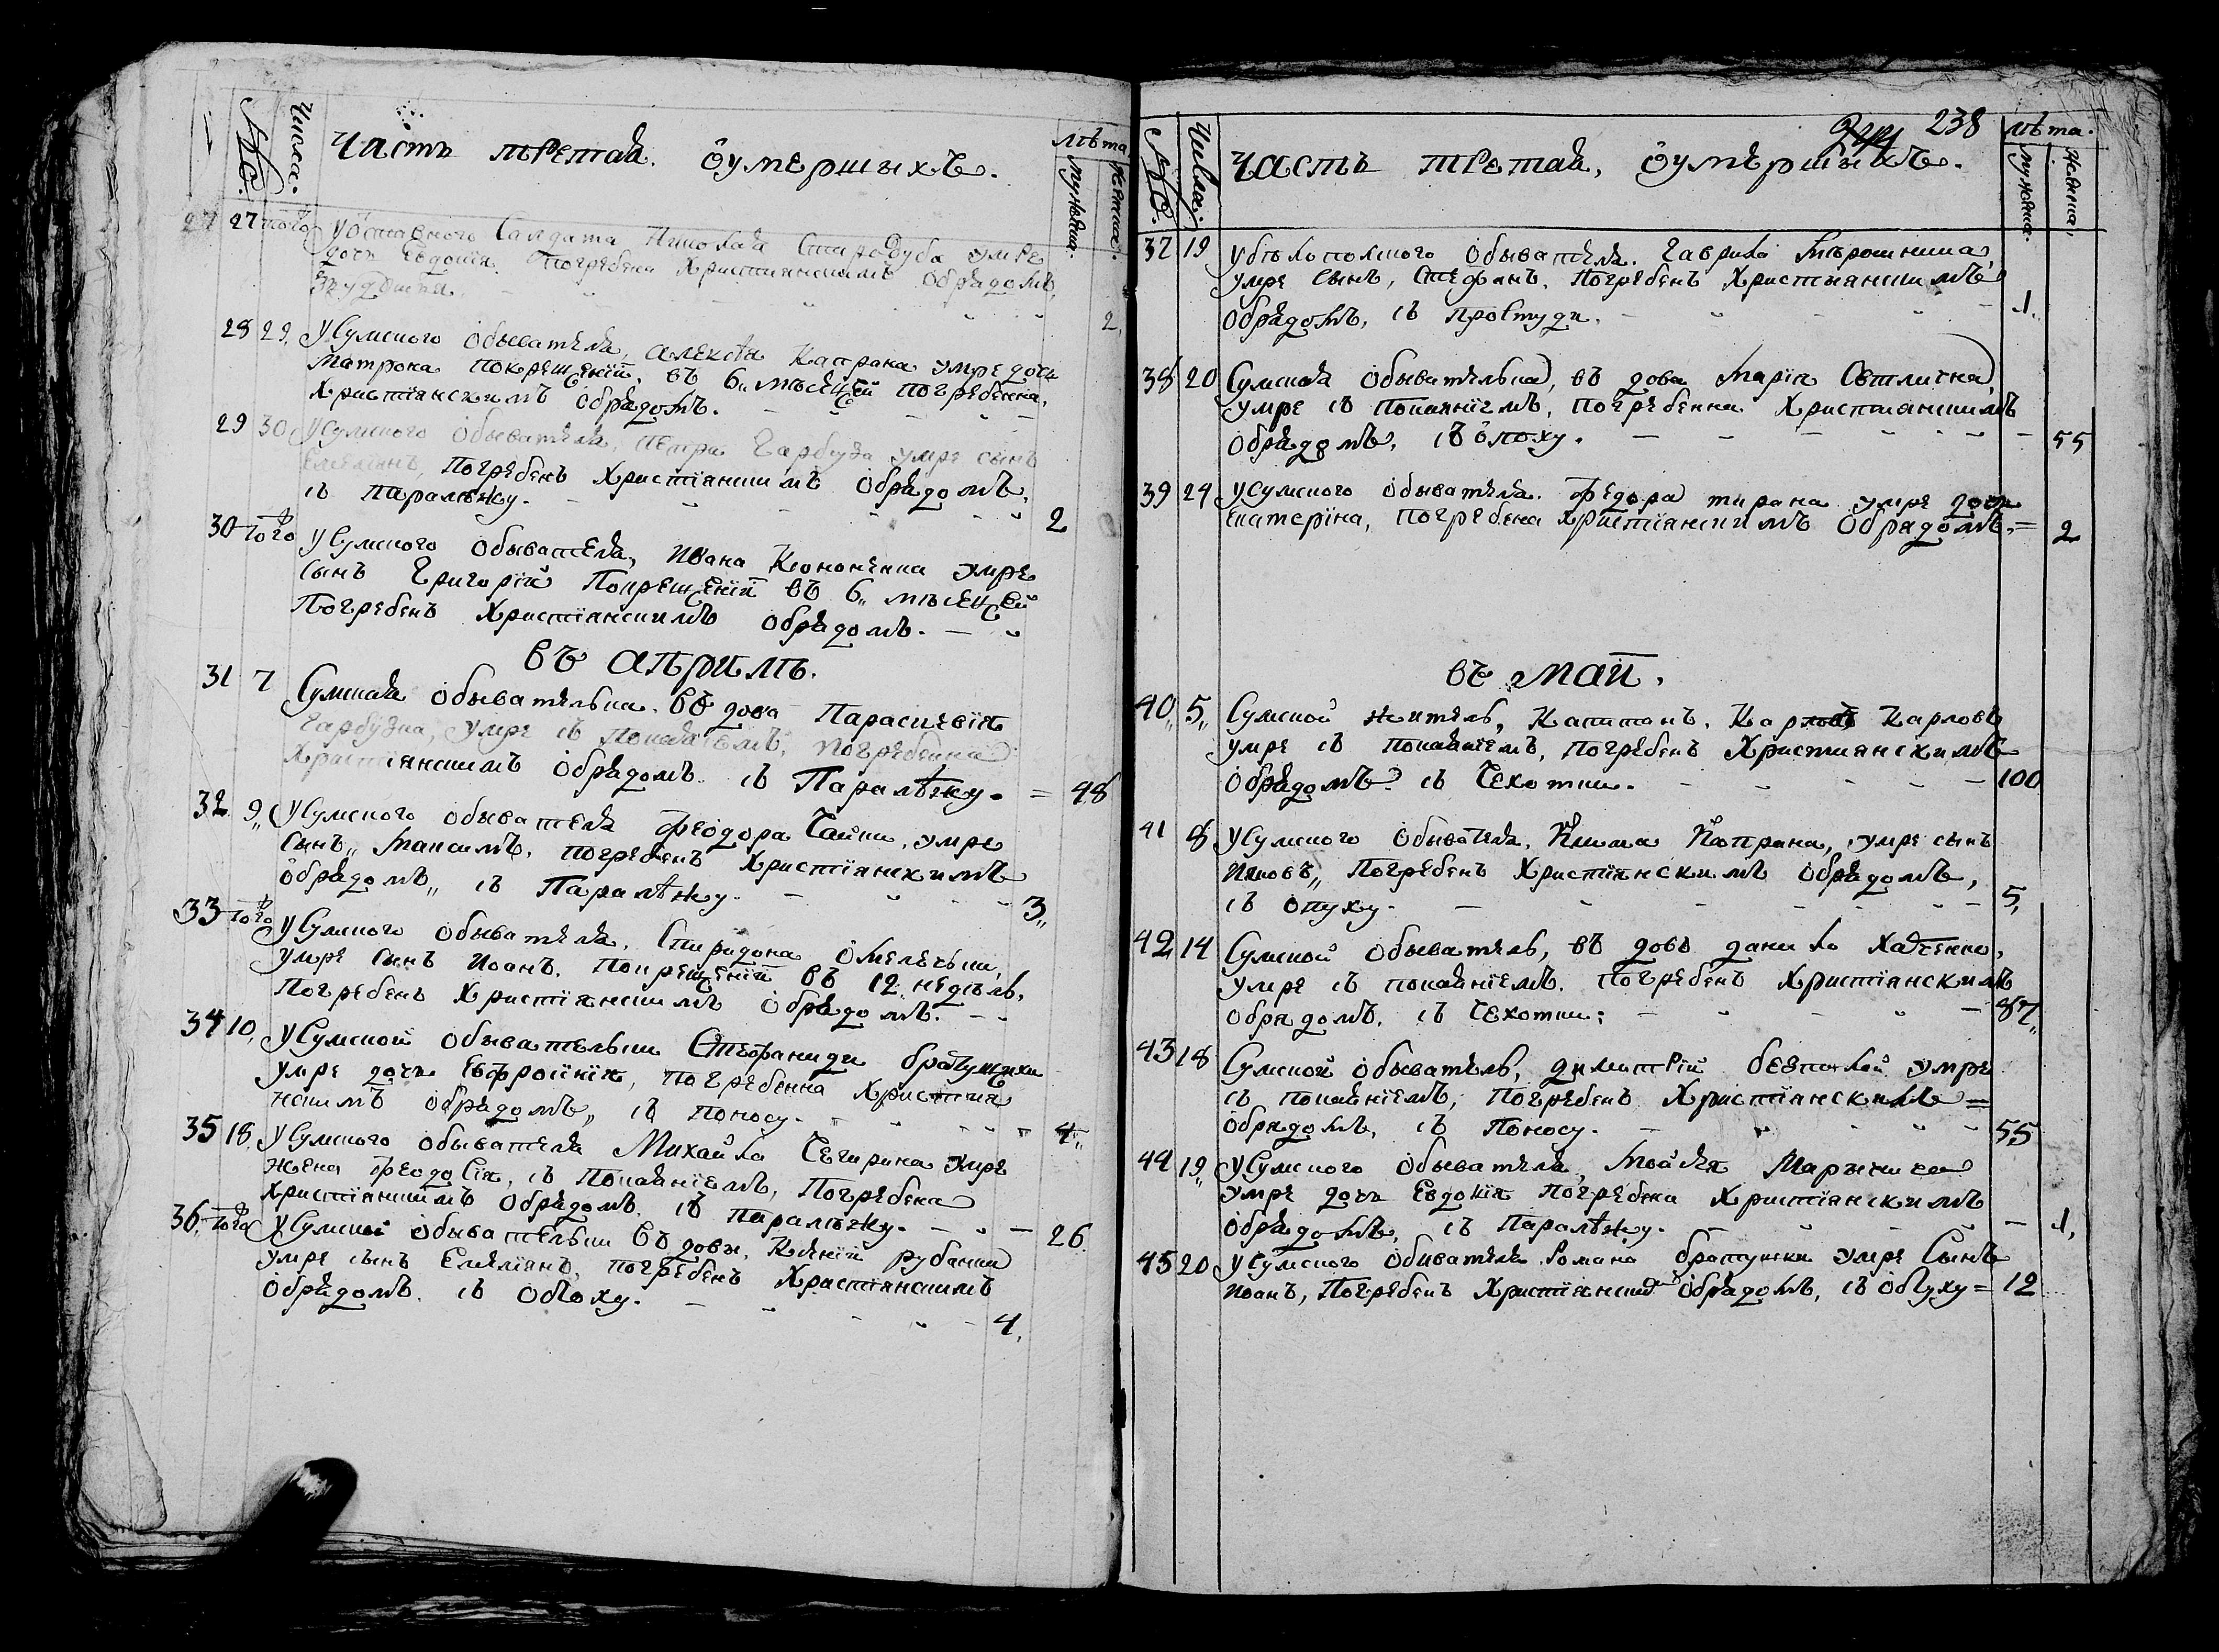 №. Числа. Часть третая. о умершыхъ. лѣта мужеска. женска.
27 27 того У отставного Салдата Николая Стародуба умре
дочь Евдокия. Погребена Христианскимъ обрядомъ,
2,
28 29. У Сумского обывателя, алексѣя Капрана умре дочь
Матрона покрещенїи, въ 6,, мѣсяцей погребенна,
Христїанскимъ обрядомъ.
29 30 У Сумского обывателя, петра Гарбуза умре сынъ
Емелїянъ, Погребенъ Христїанскимъ обрядомъ,
съ Паралѣжу. 2
30 того У Сумского обывателя, Ивана Кононенка умре
сынъ Григорїй Покрещенїи въ 6,, мѣсяцей
Погребенъ Христїанскимъ обрядомъ.
въ априлѣ.
31 7 Сумская обывателька. въдова Параскевїя
Гарбузка, умре съ Покаянїемъ, погребенна
Христїанскимъ обрядомъ. съ Паралѣжу. = 48
32 9,, У Сумского обывателя феодора Чайки, умре
сынъ,, Максимъ, погребенъ Христїанскимъ
обрядомъ,, съ Паралѣжу. 3,,
33 того У Сумского обывателя, Спиридона Омелечьки,
умре сынъ Иоанъ. Покрещенїи въ 12 недѣль,
Погребенъ Христїанскимъ обрядомъ.
34 10, У Сумской обывательки Стефаниды братущихи
умре дочь Евфросинїя, погребенна Христиа
нскимъ обрядомъ,, съ поносу. 4,,
35 18. У Сумского обывателя Михайла Чегирина умре
жена феодосїя, съ Покаянїемъ, Погребена
христїанскимъ обрядомъ. съ паралѣжу. 26.
36. того У Сумской обывательки въдовы, Ксенїи рубанки
умре сынъ Емелїянъ, погребенъ Христїанскимъ
обрядомъ. съ обтоху. 4,
238
№. Числа. Часть третая, о умершыхъ. лѣта. мужеска. женска,
37 19 У бѣлополского обывателя. Гаврила Мѣрошника,
умре сынъ, Стефанъ. Погребенъ Христианскимъ
обрядомъ, съ простуди. 1.
38 20 Сумская обывателька, въдова Марїя Свѣтлична,
умре съ Покаянїемъ, погребенна Христианскимъ
обрядомъ, съ опоху. 55
39 24 У Сумского обывателя. федора тирана умре дочь
Екатерїна, погребена христїанскимъ обрядомъ. = 2
въ маїи.
40,, 5,, Сумской житель, Капитанъ. Карловъ
умре съ Покаянїемъ, погребенъ Христианскимъ
обрядомъ. съ Чехотки. 100
41 8 У Сумского обывателя, Кѵма Капрана, умре сынъ
Ияковъ,, Погребенъ Христїанскимъ обрядомъ,
съ опуху. 5,
42 14 Сумской обыватель, въдовъ данило Хадченко,
умре съ покаянїемъ. погребенъ Христїанскимъ
обрядомъ, съ Чехотки; 87,,
43 18 Сумской обыватель, димитрїй беспалой умре
съ покаянїемъ; погребенъ Христїанскимъ =
обрядомъ, съ Поносу. 55
44 19,, У Сумского обывателя, Моисея Марченка
умре дочь Евдокїя погребена Христїанскимъ
обрядомъ, съ Паралѣжу. 1,
45 20 У Сумского обивателя Романа братушки умре Сынъ
Иоанъ, Погребенъ Христїанским обрядомъ, съ обпуху = 12